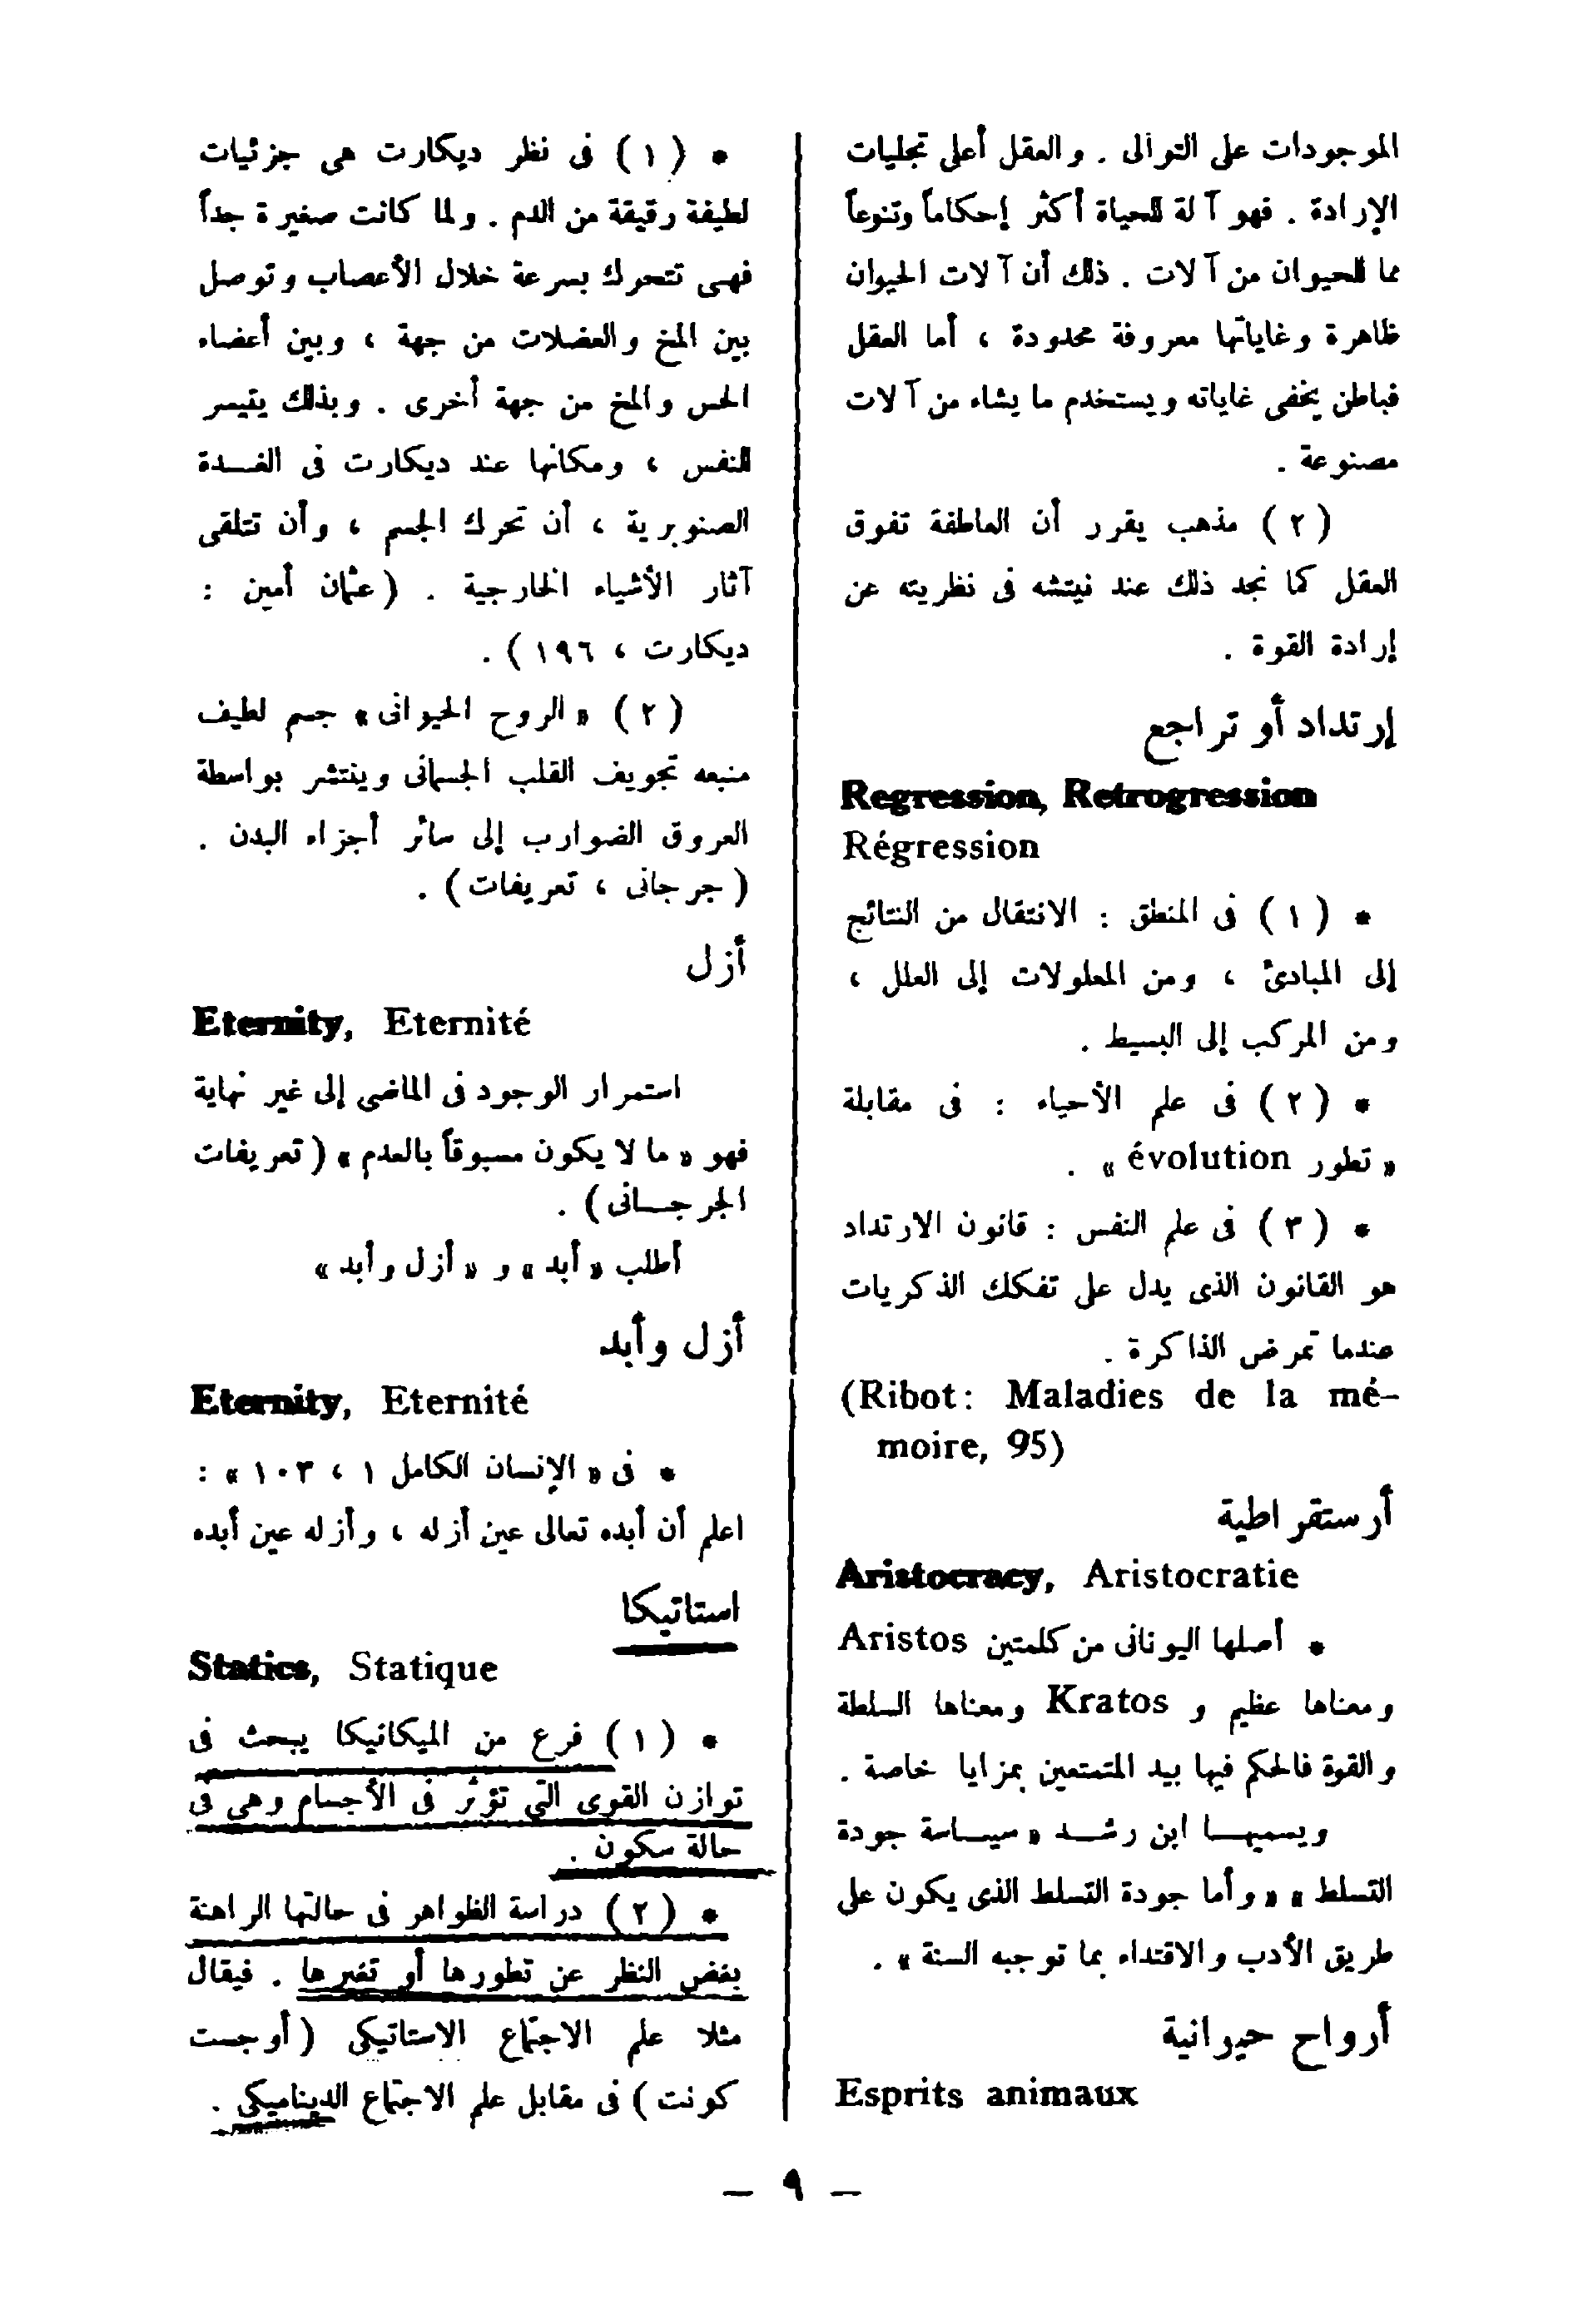 الموجودات على التوالى . والعقل أعلى تجليات
الإرادة . فهو آلة للحياة أكثر إحكاماً وتنوعاً
مما للحيوان من آلات . ذلك أن آلات الحيوان
ظاهرة وغاياتها معروفة محدودة ، أما العقل
فباطن يخفى غاياته ويستخدم ما يشاء من آلات
مصنوعة .
( ٢ ) مذهب يقرر أن العاطفة تفوق
العقل كما نجد ذلك عند نيتشه فى نظريته عن
إرادة القوة .
إرتداد أو تراجع
Regression, Retrogression
Régression
* ( ١ ) فى المنطق : الانتقال من النتائج
إلى المبادئ ، ومن المعلولات إلى العلل ،
ومن المركب إلى البسيط .
* ( ٢ ) فى علم الأحياء : فى مقابلة
« تطور évolution » .
* ( ٣ ) فى علم النفس : قانون الارتداد
هو القانون الذى يدل على تفكك الذكريات
عندما تمرض الذاكرة .
(Ribot: Maladies de la mé-
moire, 95)
أرستقراطية
Aristocracy, Aristocratie
* أصلها اليونانى من كلمتين Aristos
ومعناها عظيم و Kratos ومعناها السلطة
والقوة فالحكم فيها بيد المتمتعين بمزايا خاصة .
ويسميهـا ابن رشـد « سيـاسة جودة
التسلط » « وأما جودة التسلط الذى يكون على
طريق الأدب والاقتداء بما توجبه السنة » .
أرواح حيوانية
Esprits animaux
* ( ١ ) فى نظر ديكارت هى جزئيات
لطيفة رقيقة من الدم . ولما كانت صغيرة جداً
فهى تتحرك بسرعة خلال الأعصاب وتوصل
بين المخ والعضلات من جهة ، وبين أعضاء
الحس والمخ من جهة أخرى . وبذلك يتيسر
للنفس ، ومكانها عند ديكارت فى الغـدة
الصنوبرية ، أن تحرك الجسم ، وأن تتلقى
آثار الأشياء الخارجية . ( عثمان أمين :
ديكارت ، ١٩٦ ) .
( ٢ ) « الروح الحيوانى » جسم لطيف
منبعه تجويف القلب الجسمانى وينتشر بواسطة
العروق الضوارب إلى سائر أجزاء البدن .
( جرجانى ، تعريفات ) .
أزل
Eternity, Eternité
استمرار الوجود فى الماضى إلى غير نهاية
فهو « ما لا يكون مسبوقاً بالعدم » ( تعريفات
الجرجـانى ) .
أطلب « أبد » و « أزل وأبد »
أزل وأبد
Eternity, Eternité
* فى « الإنسان الكامل ١ ، ١٠٣ » :
اعلم أن أبده تعالى عين أزله ، وأزله عين أبده
استاتيكا
Statics, Statique
* ( ١ ) فرع من الميكانيكا يبحث فى
توازن القوى التى تؤثر فى الأجسام وهى فى
حالة سكون .
* ( ٢ ) دراسة الظواهر فى حالتها الراهنة
بغض النظر عن تطورها أو تغيرها . فيقال
مثلا علم الاجتماع الاستاتيكى ( أوجست
كونت ) فى مقابل علم الاجتماع الديناميكى .
– ٩ –